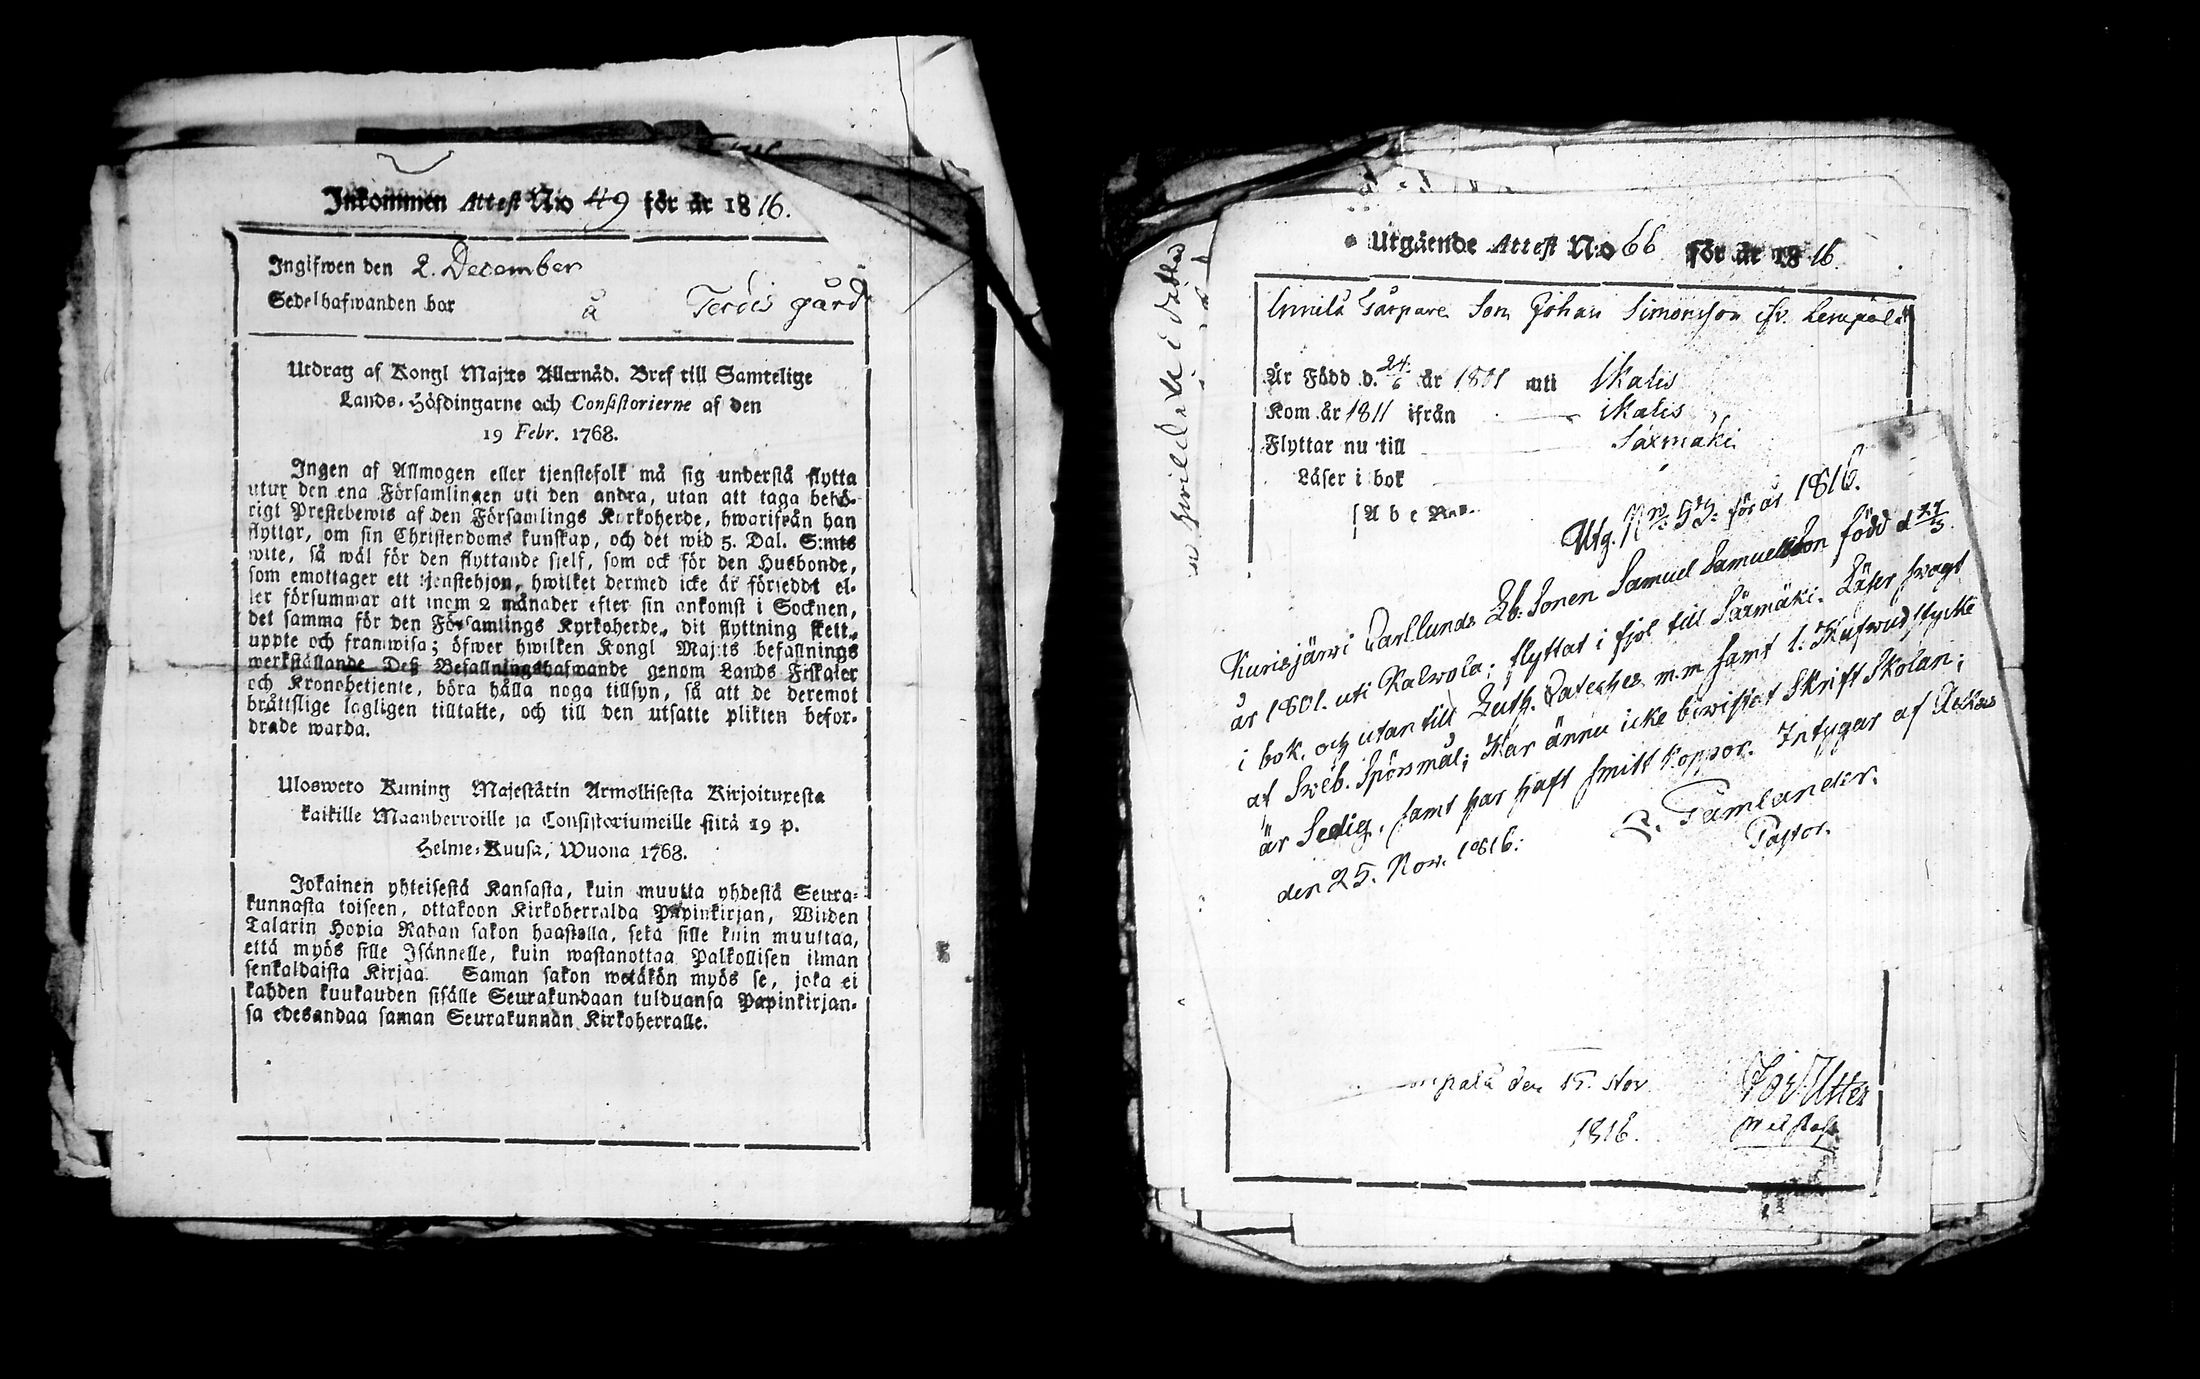 Inkommen Attest N:o 49 för år 1816.
Ingifwen den 2. December
Sedelhafwanden bor å Tervis gård
Utdrag af Kongl Maj:ts Allernåd. Bref till Samtelige
Lands-Höfdingarne och Consistorierne af den
19 Febr. 1768.
Ingen af Allmogen eller tjenstefolk må sig understå flytta
utur den ena Församlingen uti den andra, utan att taga behö-
rigt Prestebewis af den Församlings Kyrkoherde, hwarifrån han
flyttar, om sin Christendoms kunskap, och det wid 5. Dal. S:mts
wite, så wäl för den flyttande sielf, som ock för den Husbonde,
som emottager ett tjenstehjon, hwilket dermed icke är förseddt el-
ler försummar att inom 2 månader efter sin ankomst i Socknen,
det samma för den Församlings Kyrkoherde, dit flyttning skett,
uppte och framwisa; öfwer hwilken Kongl Maj:ts befallnings
werkställande Deß Befallningshafwande genom Lands Fiskaler
och Kronobetjente, böra hålla noga tillsyn, så att de deremot
bråttslige lagligen tilltalte, och till den utsatte plikten befor-
drade warda.
Ulosweto Kuning Majestätin Armollisesta Kirjoituxesta
kaikille Maanherroille ja Consistoriumeille siitä 19 p.
Helme-Kuusa, Wuona 1768.
Jokainen yhteisestä Kansasta, kuin muutta yhdestä Seura-
kunnasta toiseen, ottakoon Kirkoherralda Papinkirjan, Wiiden
Talarin Hopia Rahan sakon haastolla, sekä sille kuin muuttaa,
että myös sille Isännelle, kuin wastanottaa Palkollisen ilman
senkaldaista Kirjaa. Saman sakon wetäkön myös se, joka ei
kahden kuukauden sisälle Seurakundaan tulduansa Papinkirjan-
sa edesandaa saman Seurakunnan Kirkoherralle.
Utgående Attest N:o 66 för år 1816.
Son Johan Simonsson ifr. Lempälä
Är Född d. 24/6 år 1801 uti Ikalis
Kom år 1811 ifrån Ikalis
Flyttar nu till Säxmäki
Läser i bok
A b c
Utg. N:o 53. för år 1816.
Kurisjärwi Carllunds Sonen Samuel Samuelsson född d 27/3
år 1801. uti Kalvola; flyttat i fjol till Säxmäki. Läser swagt
i bok, och utan till Luth. Cateches m.m samt 1. Hufwudstycke
af Sweb. Spörsmål; Har ännu icke bewistat Skrift Skolan;
är Ledig, samt har haft smitt koppor. Intygar af
den 25. Nov. 1816. Tamlander.
Pastor.
den 15. Nov
1816.